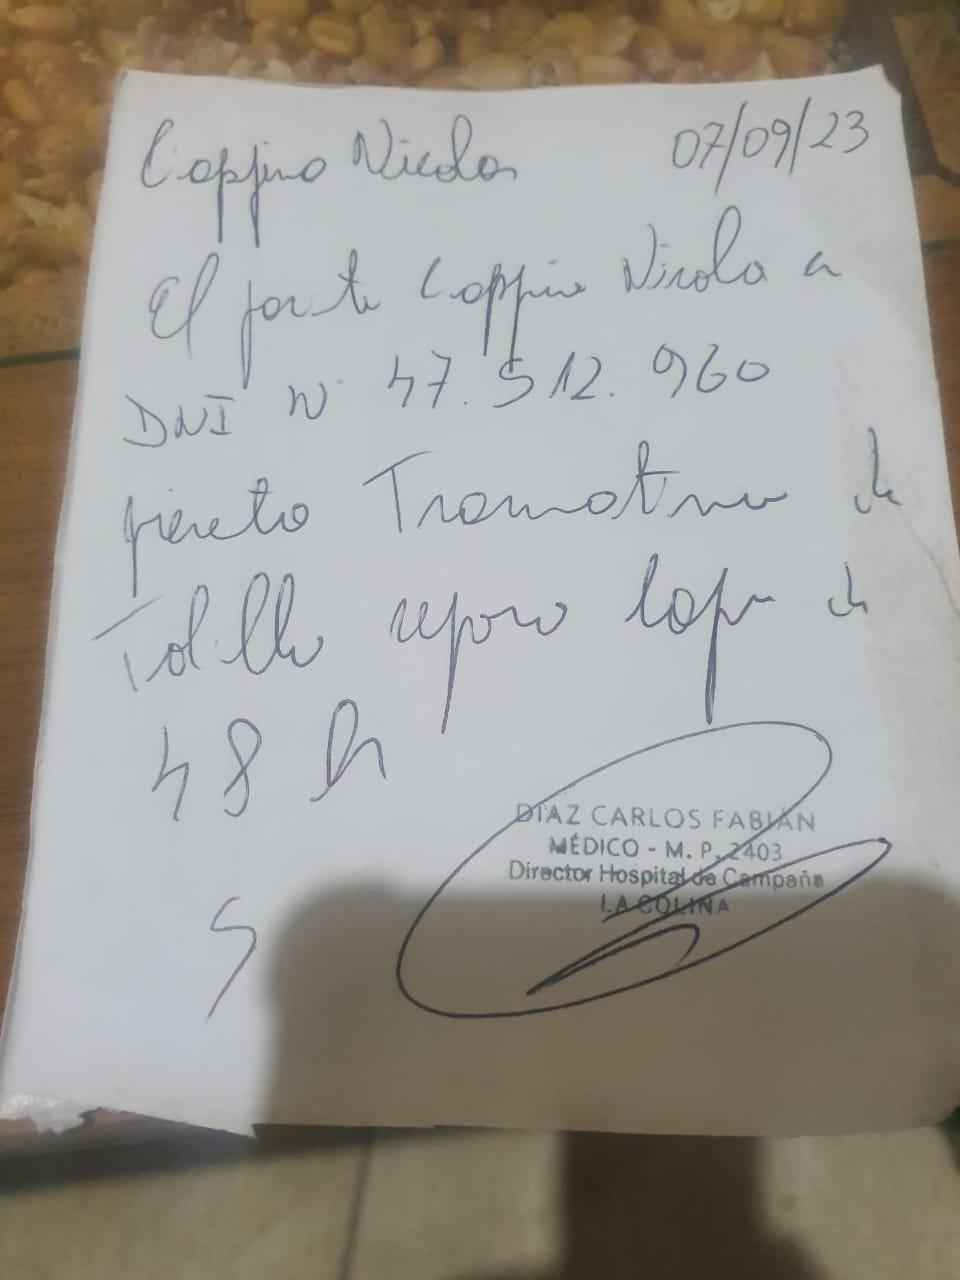 Coppino Nicolas 07/09/23
El pacte Coppino Nicolas
DNI Nº 47.512.960
presento Traumatismo de
Tobillo reposo lapso de
48 h
S
DIAZ CARLOS FABIÁN
MÉDICO - M. P. 2403
Director Hospital de Campaña
LA COLINA